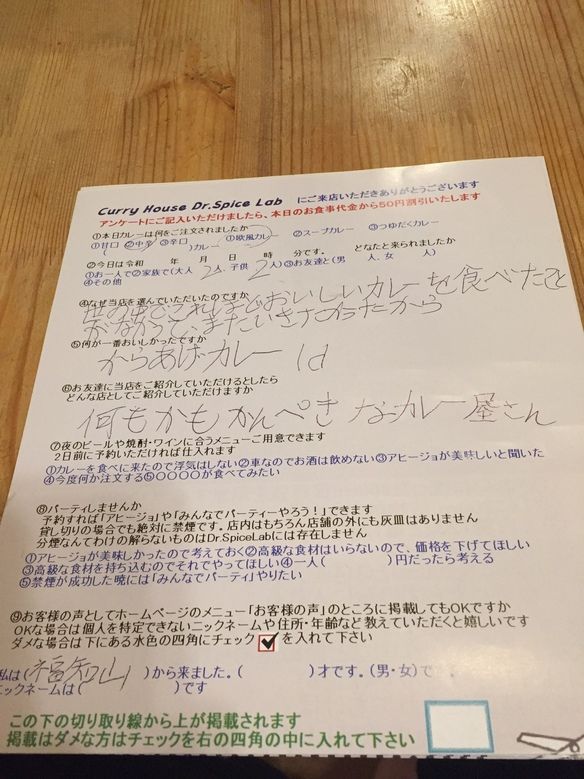 Curry House Dr.Spice Lab にご来店いただきありがとうございます
アンケートにご記入いただけましたら、本日のお食事代金から50円割引いたします
①本日カレーは何をご注文されましたか
①甘口 ②中辛 ③辛口 ①欧風カレー ②スープカレー ③つゆだくカレー
( )カレー
②今日は令和 年 月 日 時 分です。 どなたと来られましたか
①お一人で②家族で(大人 2人、子供 2人)③お友達と(男 人、女 人)
④その他
④なぜ当店を選んでいただいたのですか
世の中でこれほどおいしいカレーを食べたこと
がなかって、またいきたかったから
⑤何が一番おいしかったですか
からあげカレー
⑥お友達に当店をご紹介していただけるとしたら
どんな店としてご紹介していただけますか
何もかもかんぺきなカレー屋さん
⑦夜のビールや焼酎・ワインに合うメニューご用意できます
2日前に予約いただければ仕入れます
①カレーを食べに来たので浮気はしない②車なのでお酒は飲めない③アヒージョが美味しいと聞いた
④今度何か注文する⑤〇〇〇〇が食べてみたい
⑧パーティしませんか
予約すれば「アヒージョ」や「みんなでパーティーやろう！」できます
貸し切りの場合でも絶対に禁煙です。店内はもちろん店舗の外にも灰皿はありません
分煙なんてわけの解らないものはDr.SpiceLabには存在しません
①アヒージョが美味しかったので考えておく②高級な食材はいらないので、価格を下げてほしい
③高級な食材を持ち込むのでそれでやってほしい④一人( )円だったら考える
⑤禁煙が成功した暁には「みんなでパーティ」やりたい
⑨お客様の声としてホームページのメニュー「お客様の声」のところに掲載してもOKですか
OKな場合は個人を特定できないニックネームや住所・年齢など教えていただくと嬉しいです
ダメな場合は下にある水色の四角にチェック を入れて下さい
私は(福知山)から来ました。( )才です。(男・女)で
ックネームは( )です
この下の切り取り線から上が掲載されます
掲載はダメな方はチェックを右の四角の中に入れて下さい